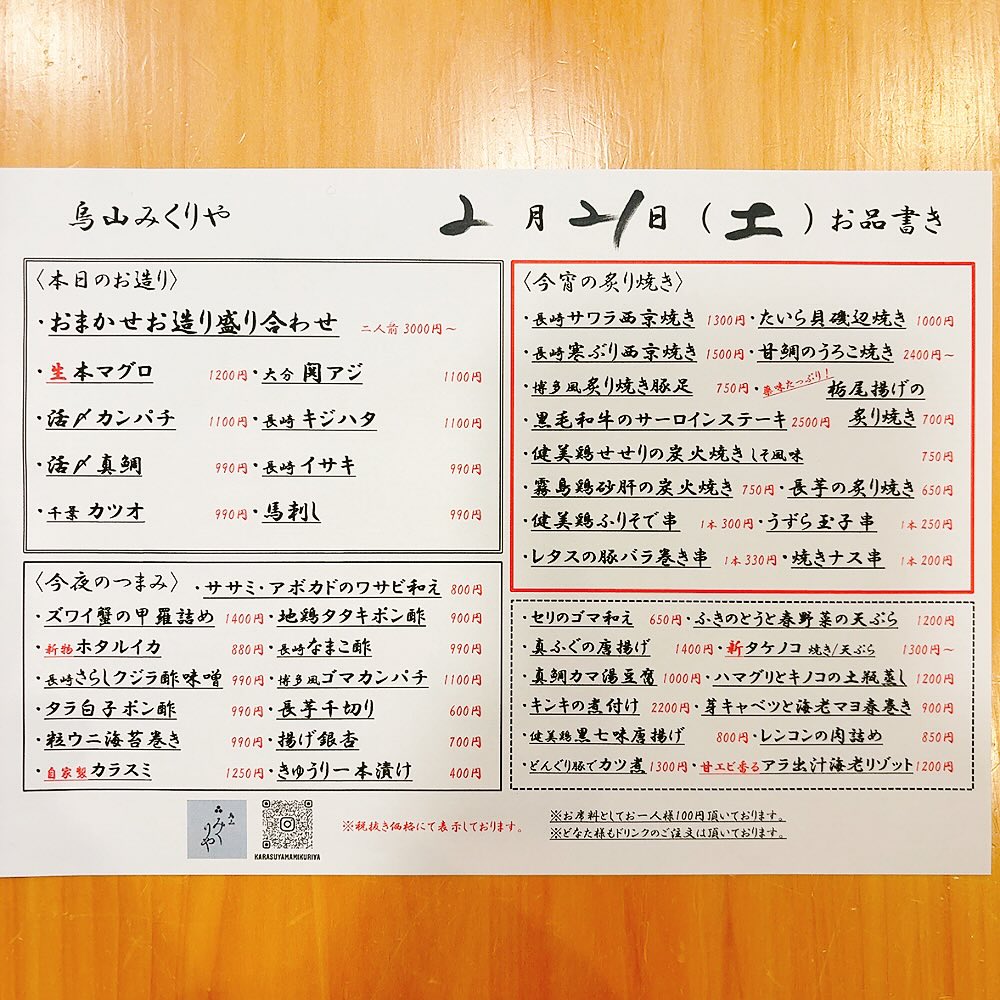 烏山みくりや
2月21日(土)お品書き
〈本日のお造り〉
・おまかせお造り盛り合わせ 二人前 3000円～
・生本マグロ 1200円・大分 関アジ 1100円
・活〆カンパチ 1100円・長崎 キジハタ 1100円
・活〆真鯛 990円・長崎 イサキ 990円
・千葉 カツオ 990円・馬刺し 990円
〈今夜のつまみ〉・ササミ・アボカドのワサビ和え 800円
・ズワイ蟹の甲羅詰め 1400円・地鶏タタキポン酢 900円
・新物ホタルイカ 880円・長崎なまこ酢 990円
・長崎さらしクジラ酢味噌 990円・博多風ゴマカンパチ 1100円
・タラ白子ポン酢 990円・長芋千切り 600円
・粒ウニ海苔巻き 990円・揚げ銀杏 700円
・自家製カラスミ 1250円・きゅうり一本漬け 400円
〈今宵の炙り焼き〉
・長崎サワラ西京焼き 1300円・たいら貝磯辺焼き 1000円
・長崎寒ぶり西京焼き 1500円・甘鯛のうろこ焼き 2400円～
・博多風炙り焼き豚足 750円・薬味たっぷり!栃尾揚げの
・黒毛和牛のサーロインステーキ 2500円 炙り焼き 700円
・健美鶏せせりの炭火焼きしそ風味 750円
・霧島鶏砂肝の炭火焼き 750円・長芋の炙り焼き 650円
・健美鶏ふりそで串 1本300円・うずら玉子串 1本250円
・レタスの豚バラ巻き串 1本330円・焼きナス串 1本200円
・セリのゴマ和え 650円・ふきのとうと春野菜の天ぷら 1200円
・真ふぐの唐揚げ 1400円・新タケノコ 焼き/天ぷら 1300円～
・真鯛カマ湯豆腐 1000円・ハマグリとキノコの土瓶蒸し 1200円
・キンキの煮付け 2200円・芽キャベツと海老マヨ春巻き 900円
・健美鶏黒七味唐揚げ 800円・レンコンの肉詰め 850円
・どんぐり豚でカツ煮 1300円・甘エビ香るアラ出汁海老リゾット 1200円
烏山
みくりや
KARASUYAMAMIKURIYA
※税抜き価格にて表示しております。
※お席料としてお一人様100円頂いております。
※どなた様もドリンクのご注文は頂いております。